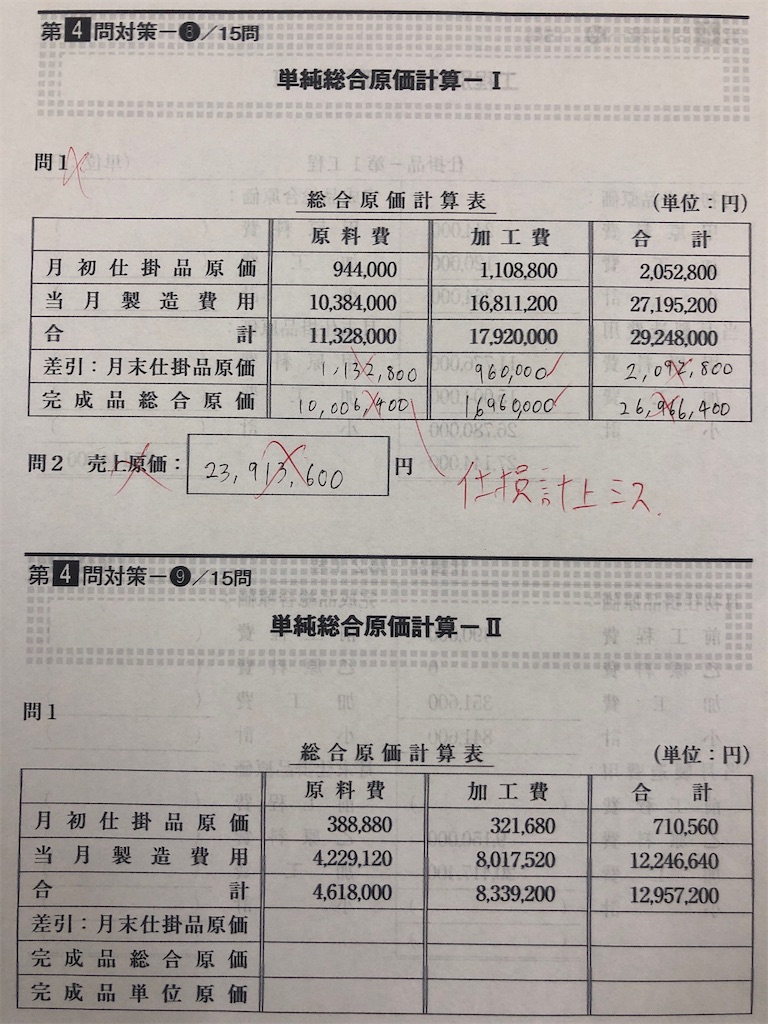 第4問対策－❽／15問
単純総合原価計算－Ⅰ
問1
総合原価計算表 (単位：円)
原料費 加工費 合計
月初仕掛品原価 944,000 1,108,800 2,052,800
当月製造費用 10,384,000 16,811,200 27,195,200
合計 11,328,000 17,920,000 29,248,000
差引：月末仕掛品原価 1,132,800 960,000 2,092,800
完成品総合原価 10,006,400 16960,000 26,966,400
問2 売上原価： 23,913,600 円
仕損計上ミス.
第4問対策－❾／15問
単純総合原価計算－Ⅱ
問1
総合原価計算表 (単位：円)
原料費 加工費 合計
月初仕掛品原価 388,880 321,680 710,560
当月製造費用 4,229,120 8,017,520 12,246,640
合計 4,618,000 8,339,200 12,957,200
差引：月末仕掛品原価
完成品総合原価
完成品単位原価